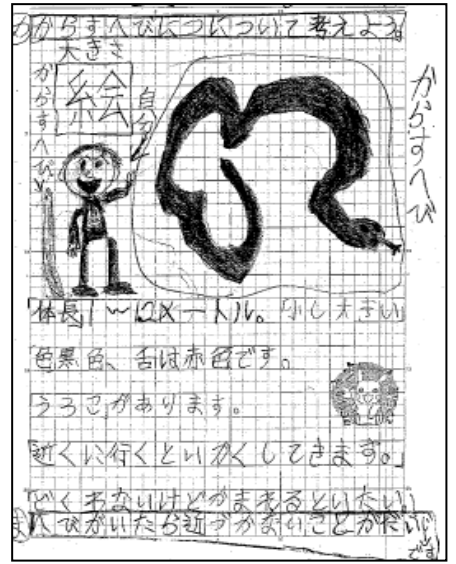 めからすへびにつについて考えよう
大きさ
からすへび
絵
自分
からすへび
「体長」1〜1.2メートル。少し大きい
色黒色、舌は赤色です。
うろこがあります。
「近くに行くといかくしてきます。」
どくわないけどかまれるといたい
まへびがいたら近づかないことがだいじです